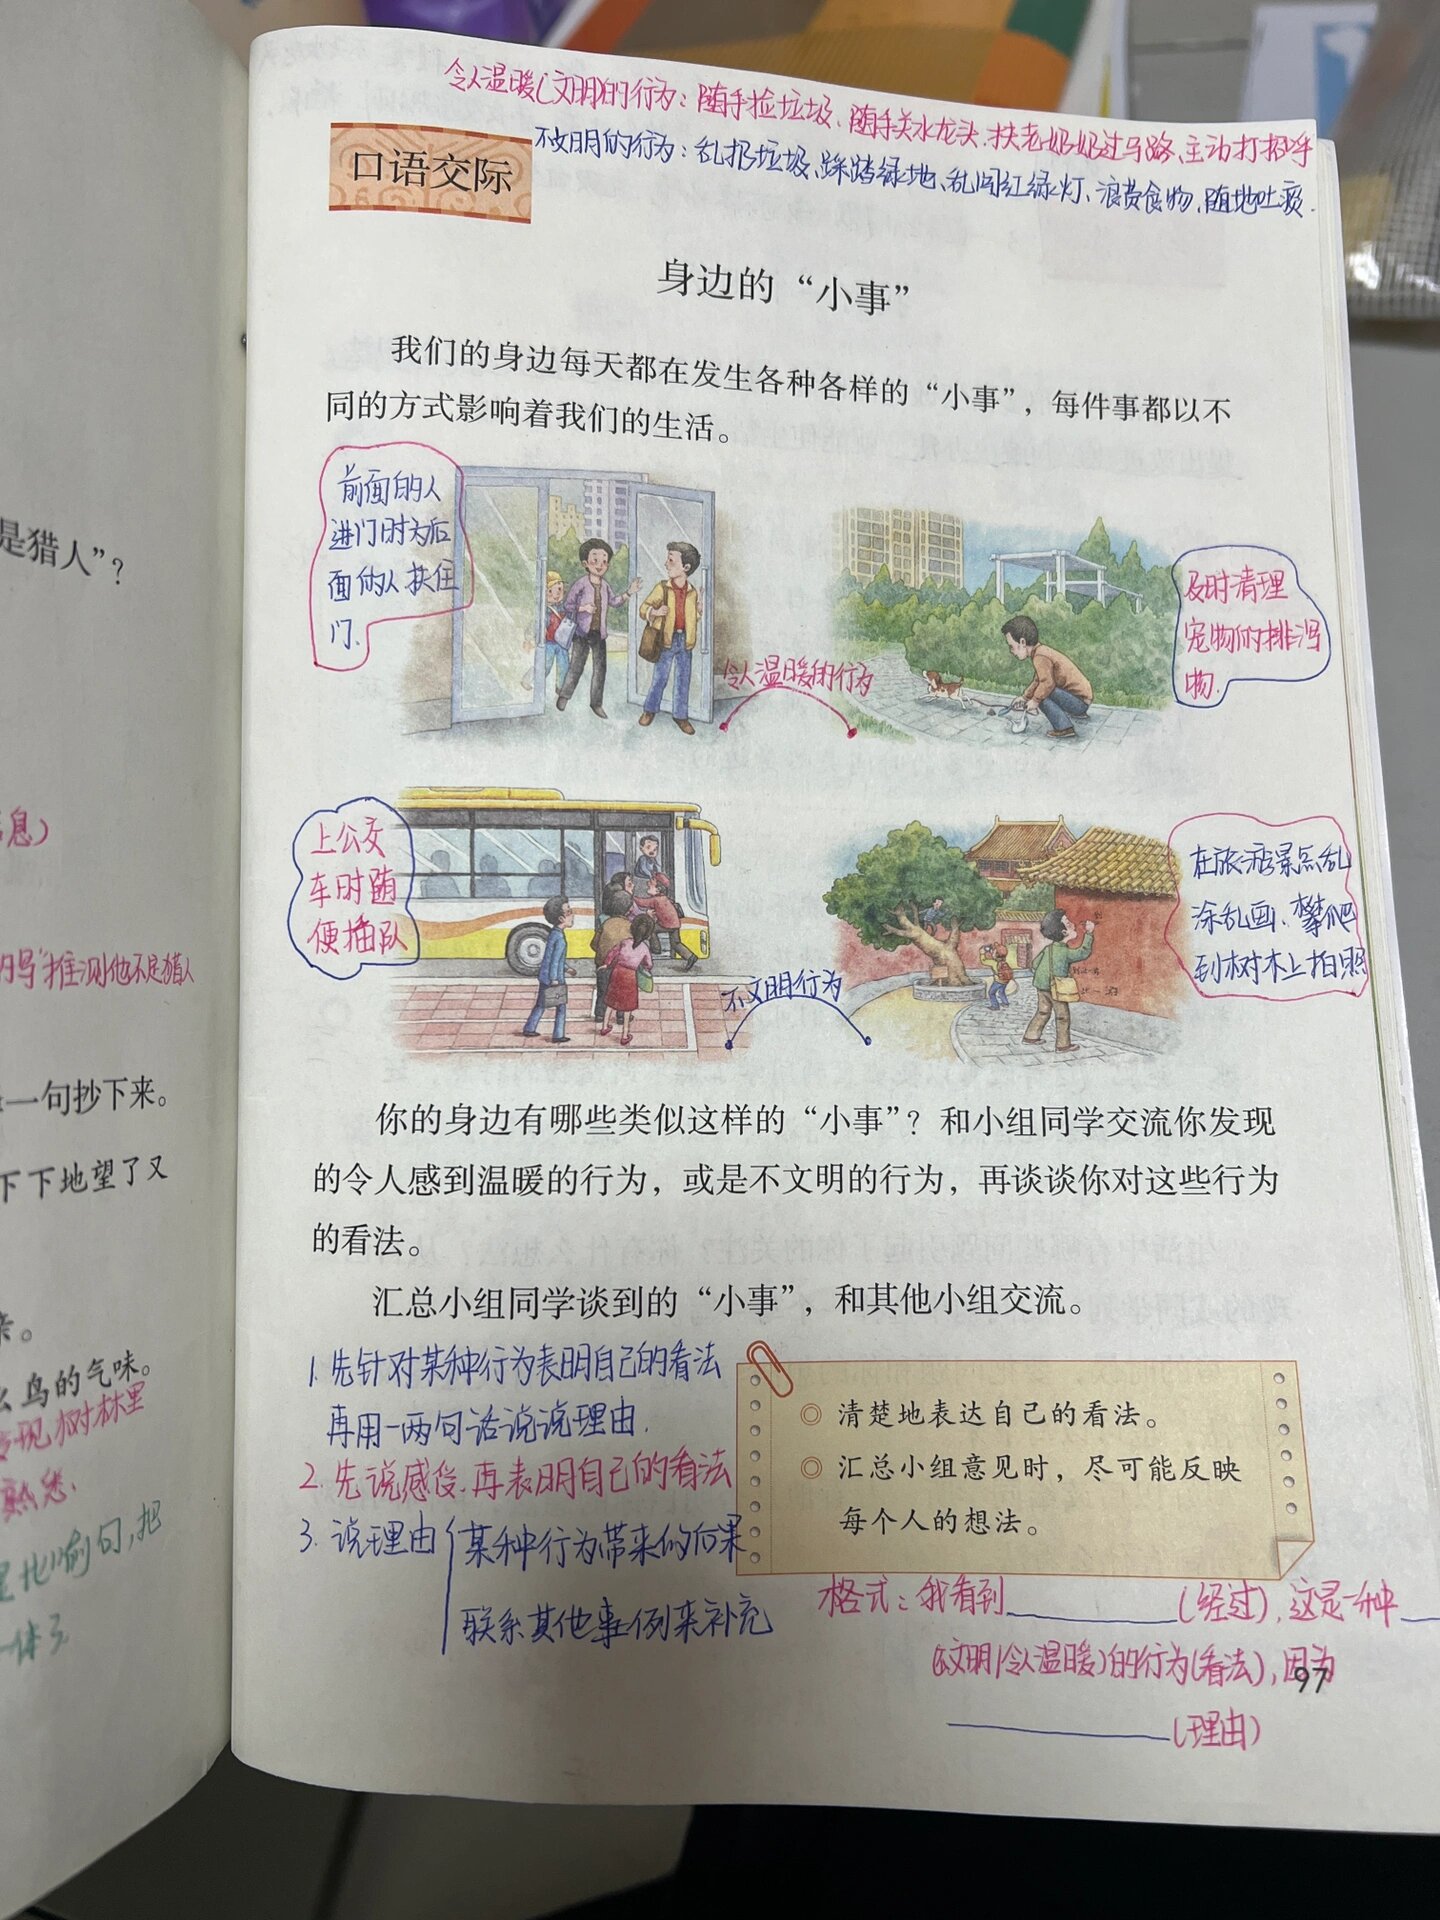 令人温暖(文明)的行为：随手捡垃圾、随手关水龙头、扶老奶奶过马路、主动打招呼
不文明的行为：乱扔垃圾、踩踏绿地、乱闯红绿灯、浪费食物、随地吐痰.
口语交际
身边的“小事”
我们的身边每天都在发生各种各样的“小事”，每件事都以不
同的方式影响着我们的生活。
前面的人
进门时为后
面的人扶住
门.
及时清理
宠物的排泻
物.
令人温暖的行为
上公交
车时随
便插队
在旅游景点乱
涂乱画、攀爬
到树木上拍照
不文明行为
你的身边有哪些类似这样的“小事”？和小组同学交流你发现
的令人感到温暖的行为，或是不文明的行为，再谈谈你对这些行为
的看法。
汇总小组同学谈到的“小事”，和其他小组交流。
1.先针对某种行为表明自己的看法
再用一两句话说说理由.
2.先说感受.再表明自己的看法
3.说理由
某种行为带来的后果
联系其他事例来补充
◎ 清楚地表达自己的看法。
◎ 汇总小组意见时，尽可能反映
每个人的想法。
格式：我看到______(经过)，这是一种__
(不文明/令人温暖)的行为(看法)，因为
______(理由)
97
是猎人”？
息）
的鸟”推测他不是猎人
一句抄下来。
下下地望了又
亲。
么鸟的气味。
发现树林里
熟悉.